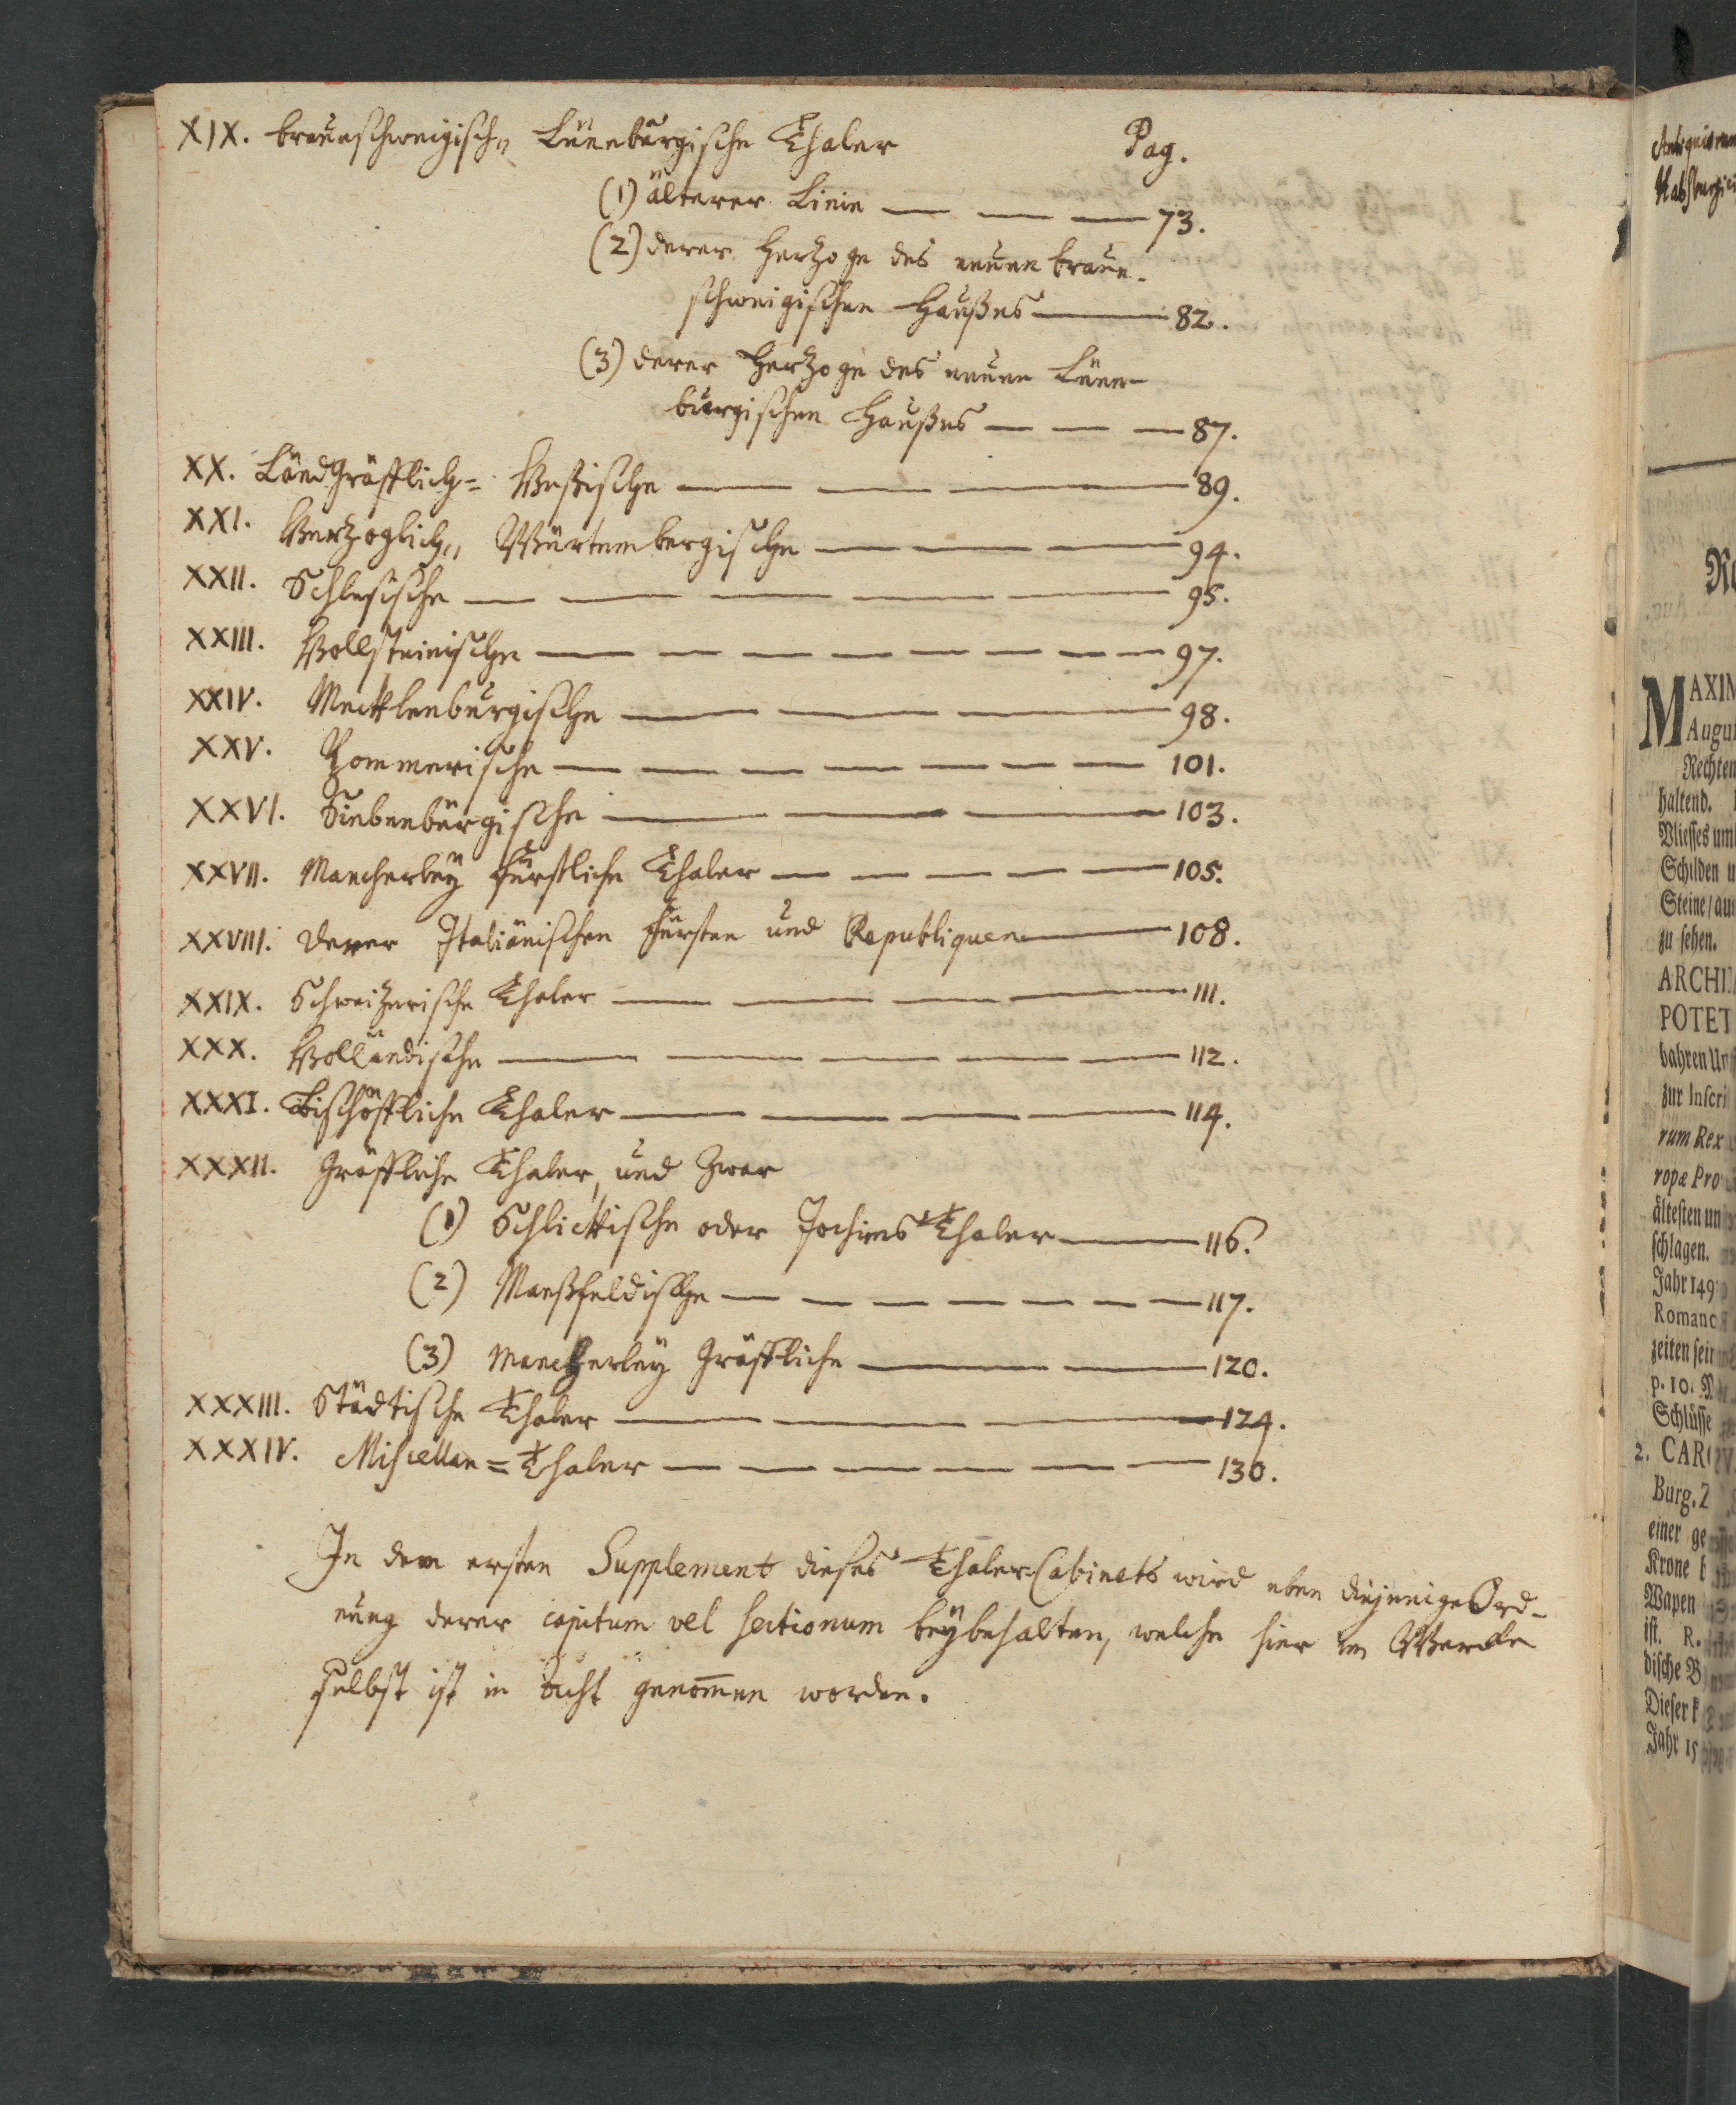 XIX. braunschweigisch„ Lüneburgische Thaler Pag.
(1) älterer Linie — — — 73.
(2) derer Hertzoge des neuen braun-
schweigischen Haußes — 82.
(3) derer Hertzoge des neuen Lüne-
burgischen Haußes — — — 87.
XX. Landgräfflich= Heßische — — — 89.
XXI. Hertzoglich„ Würtembergische — — — 94.
XXII. Schlesische — — — — — 95.
XXIII. Hollsteinische — — — — — — — 97.
XXIV. Mecklenburgische — — — 98.
XXV. Pommerische — — — — — — — 101.
XXVI. Siebenbürgische — — — 103.
XXVII. Mancherleÿ fürstliche Thaler — — — — — 105.
XXVIII. derer Italiänischen fürsten und Republiquen — 108.
XXIX. Schweitzerische Thaler — — — — 111.
XXX. Holländische — — — — — 112.
XXXI. Bischöffliche Thaler — — — — 114.
XXXII. Gräffliche Thaler, und zwar
(1) Schlickische oder Jochims Thaler — 116.
(2) Manßfeldische — — — — — — — 117.
(3) Mancherleÿ Gräffliche — — 120.
XXXIII. Städtische Thaler — — — 124.
XXXIV. Miscellan=Thaler — — — — — — 130.
In dem ersten Supplement dieses Thaler-Cabinets wird eben diejenige Ord-
nung derer capitum vel sectionum beÿbehalten, welche hier im Wercke
selbst ist in acht genom̄en worden.
Antiquior
Habsburgi
MAXIM
Augu
Rechten
haltend.
Vliesses um
Schilden
Steine / au
zu sehen.
ARCHI
POTET
bahren Un
zur Inscri
rum Rex
ropæ Pro
ältesten un
schlagen.
Jahr 149
Romano
zeiten sein
p. 10.
Schlüsse
2. CAR
Burg.
einer ge
Krone
Wapen
ist. R.
dische
Dieser
Jahr 15